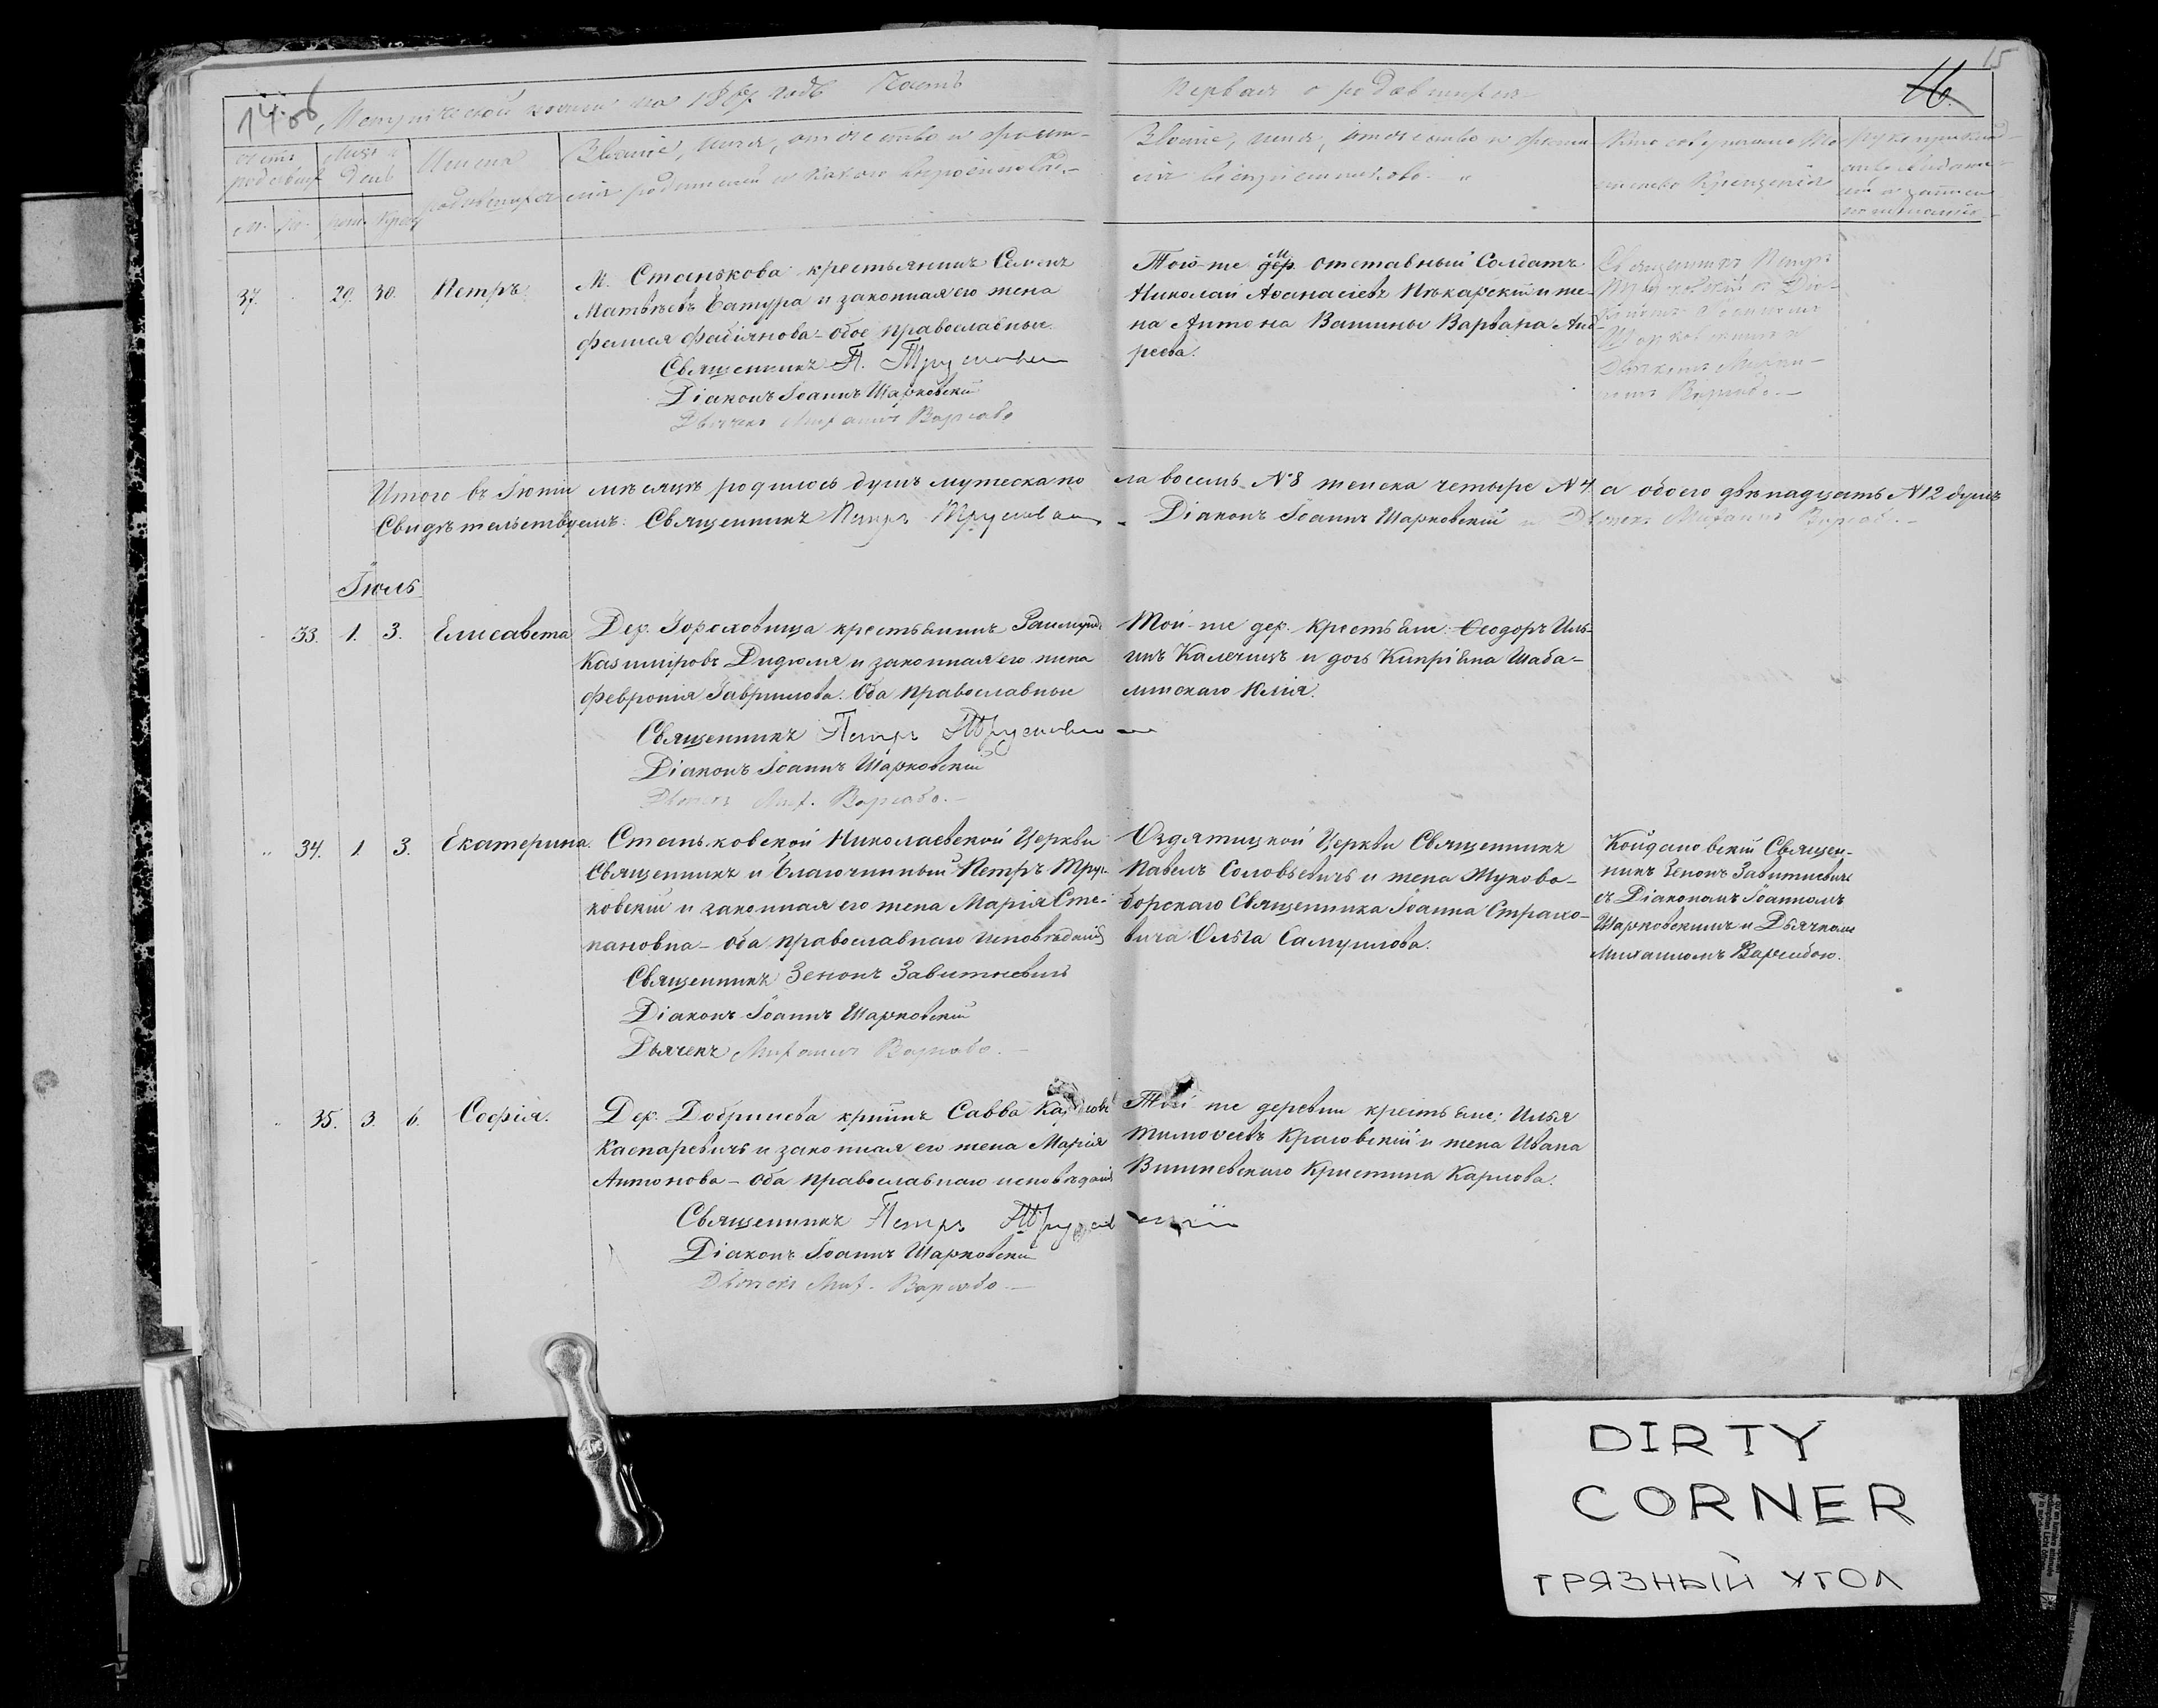 15
16.
Метрической книги на 1867 годъ Часть
Первая о родившихся
Имена родившихся
Званіе, имя, отчество и фами-
лія родителей и какого вѣроисповѣд.
Званіе, имя, отчество и фами-
лія воспріемниковъ.
Кто совершалъ та-
инство Крещенія
37. 29. 30. Петръ.
М. Станькова крестьянинъ Семенъ
Матвѣевъ Батура и законная его жена
Фабіянова - обое православные.
Священникъ П.
Діаконъ Іоаннъ Шарковскій
Дьячекъ Михаилъ
Той-же отставный Солдатъ
Николай Аѳанасіевъ Пѣкарскій и же-
на Антона Варвара Анд-
реева.
Итого въ Іюнѣ мѣсяцѣ родилось душъ мужеска по
ла восемь N8 женска четыре N4 а обоего двѣнадцать N12 душъ
Свидѣтельствуемъ: Священникъ Петръ
Діаконъ Іоаннъ Шарковскій и Дьячекъ Михаилъ
Іюль
33. 1. 3. Елисавета
Дер. крестьянинъ
Казиміровъ и законная его жена
Февронія Гаврилова. Оба православные
Священникъ Петръ
Діаконъ Іоаннъ Шарковскій
Дьячекъ Мих.
Той-же дер. крестьяне: Ѳеодоръ Иль-
инъ Калечицъ и дочь Кипріяна Шаба-
линскаго Юлія.
34. 1. 3. Екатерина.
Станьковской Николаевской Церкви
Священникъ и Благочинный Петръ Трус-
ковскій и законная его жена Марія Сте-
пановна - оба православнаго исповѣданія
Священникъ Зенонъ Завитневичъ
Діаконъ Іоаннъ Шарковскій
Дьячекъ Михаилъ
Оздятицкой Церкви Священникъ
Павелъ Соловьевичъ и жена Жуково-
борскаго Священника Іоанна Страхо-
вича Ольга Самуилова.
Койдановскій Священ-
никъ Зенонъ Завитневичъ
съ Діакономъ Іоанномъ
Шарковскимъ и Дьячкомъ
Михаиломъ
35. 3. 6. Софія.
Дер. Добринева Савва
Каспаревичъ и законная его жена Марія
Антонова - оба православнаго исповѣданія
Священникъ Петръ
Діаконъ Іоаннъ Шарковскій
Дьячекъ Мих.
Той же деревни крестьяне: Илья
Тимоѳеевъ и жена Ивана
Вишневскаго Кристина Карлова.
DIRTY
CORNER
ГРЯЗНЫЙ УГОЛ